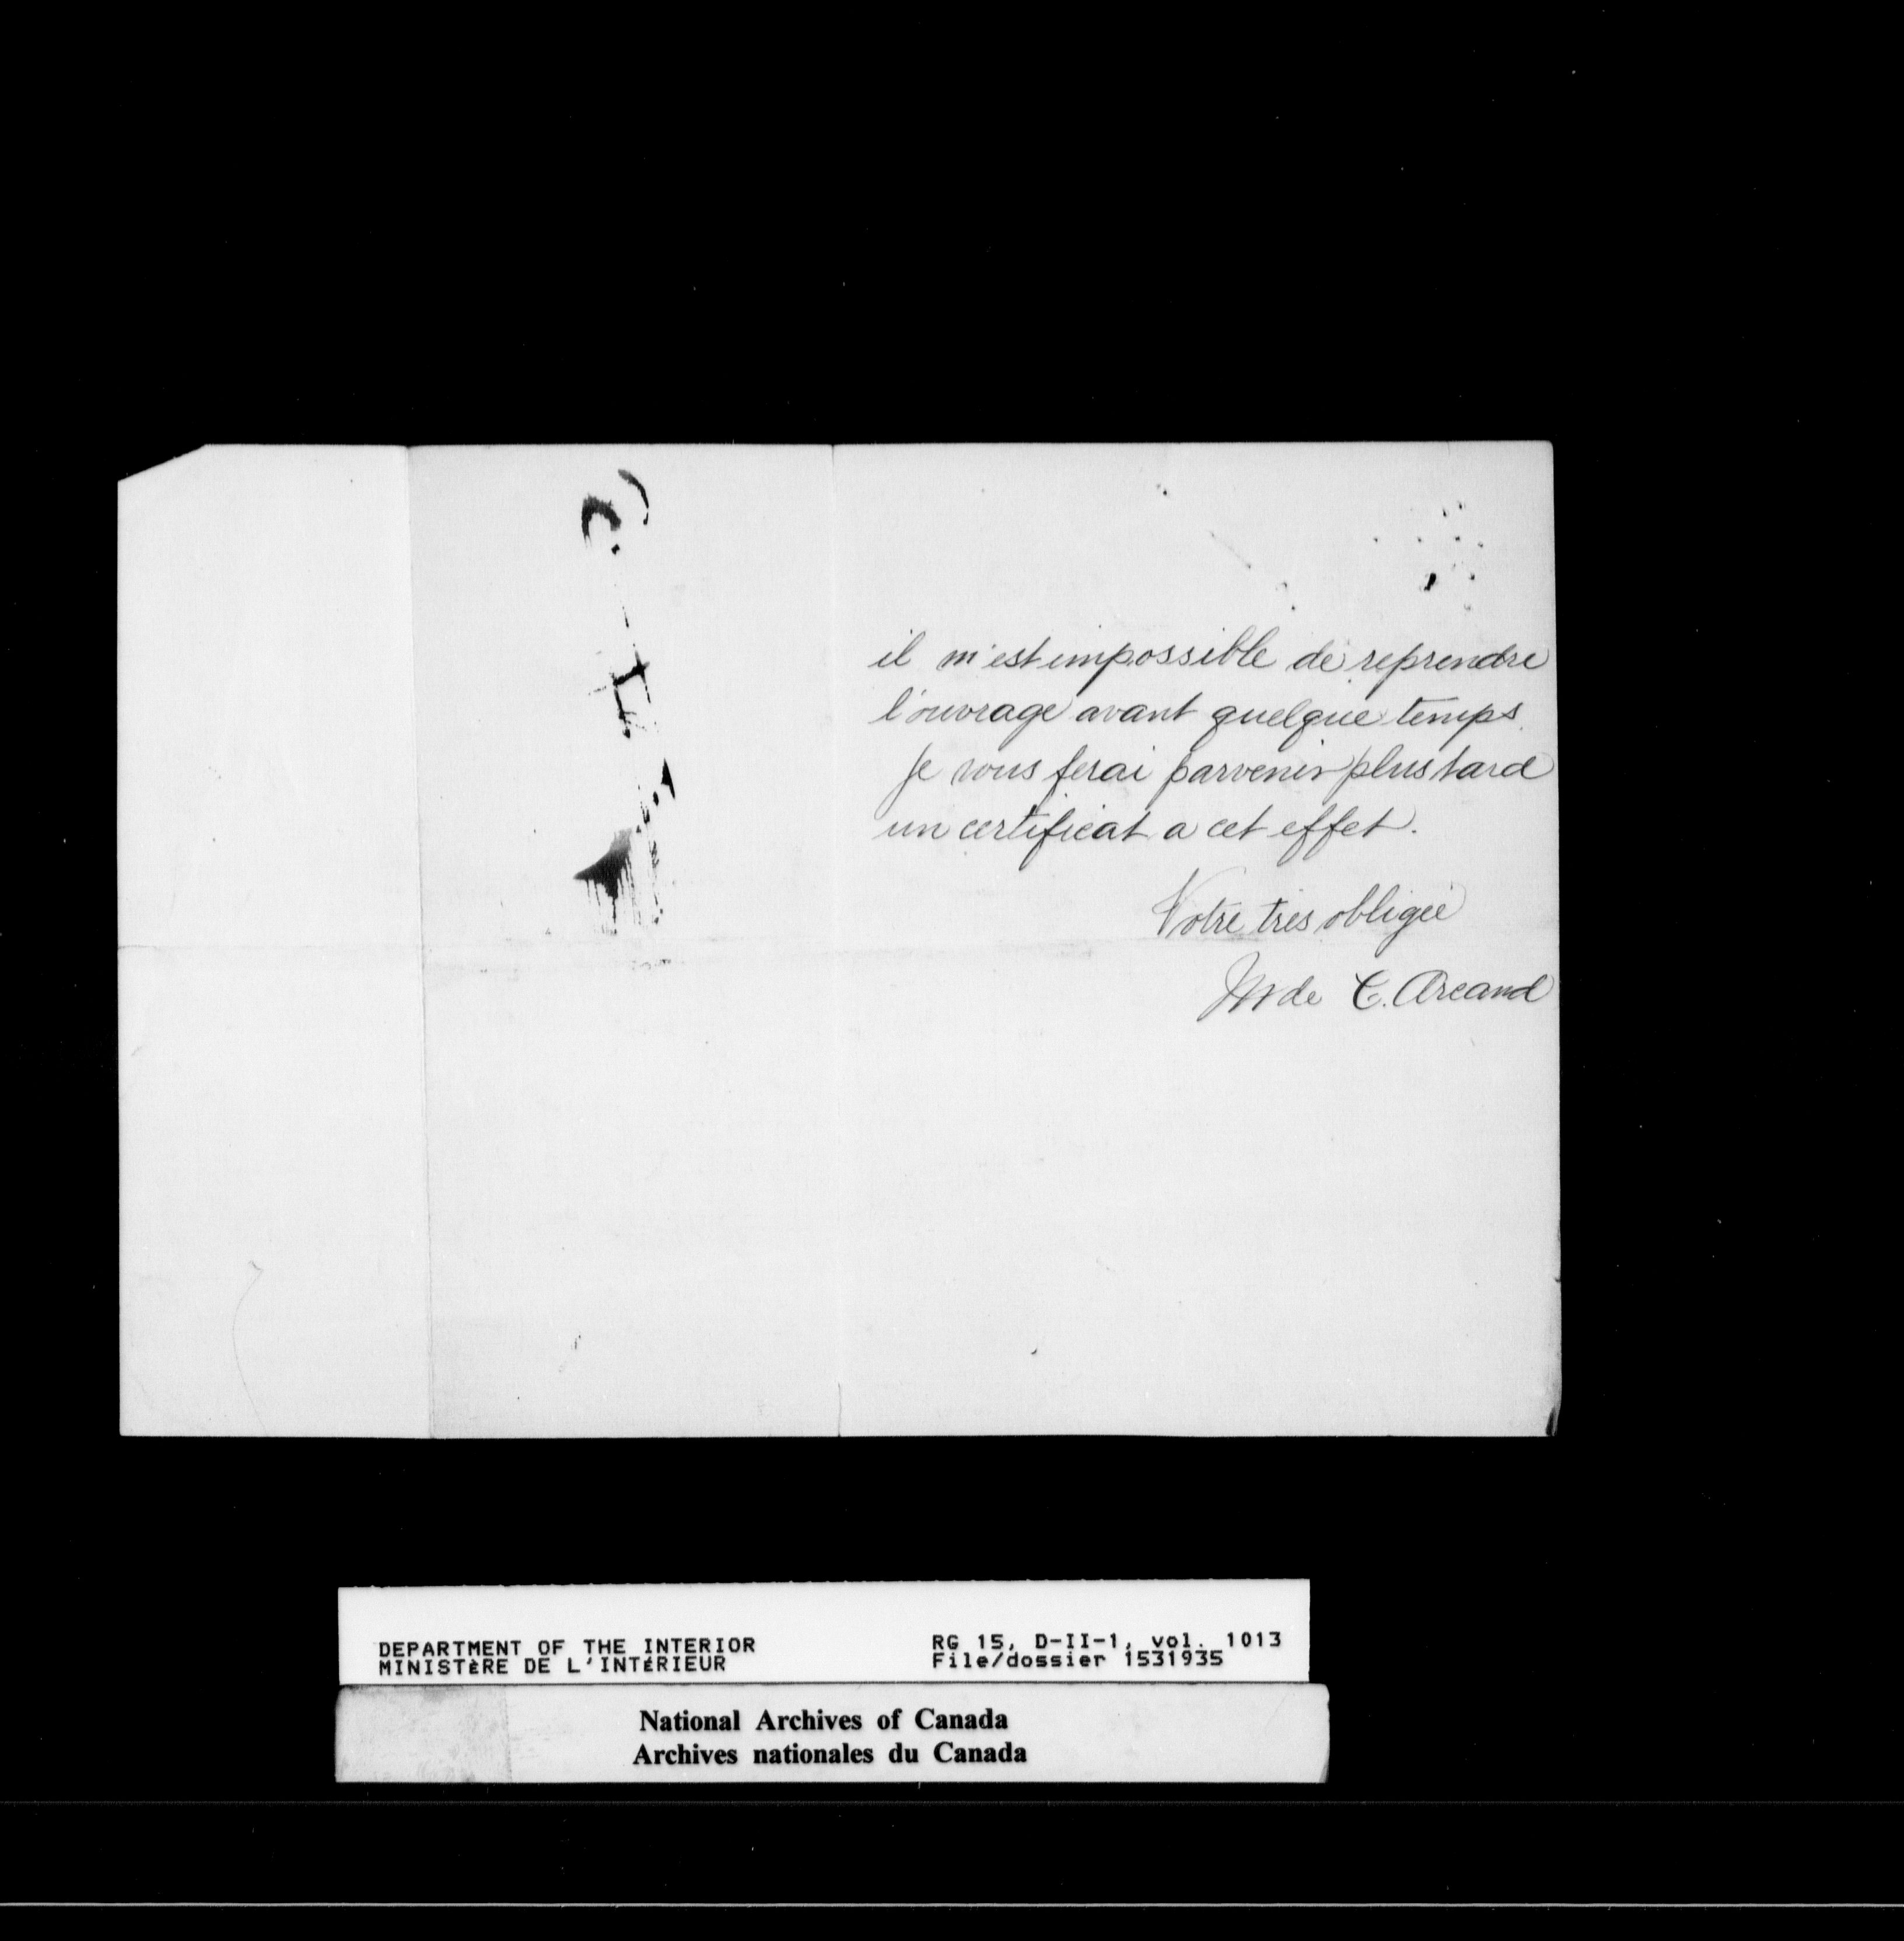 il m'est impossible de reprendre
l'ouvrage avant quelque temps.
Je vous ferai parvenir plus tard
un certificat a cet effet.
Votre tres obligée
Mde C. Arcand
DEPARTMENT OF THE INTERIOR
MINISTèRE DE L'INTéRIEUR
RG 15, D-II-1, vol. 1013
File/dossier 1531935
National Archives of Canada
Archives nationales du Canada